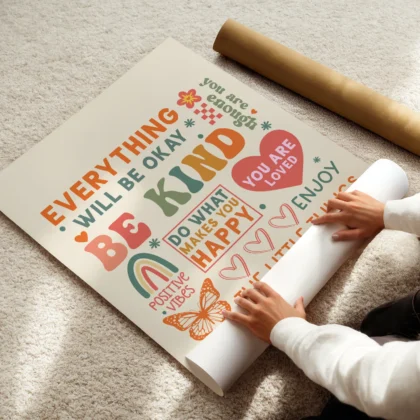 you are
enough
EVERYTHING
WILL BE OKAY
BE KIND
YOU ARE
LOVED
DO WHAT
MAKES YOU
HAPPY
ENJOY
LITTLE
POSITIVE
VIBES